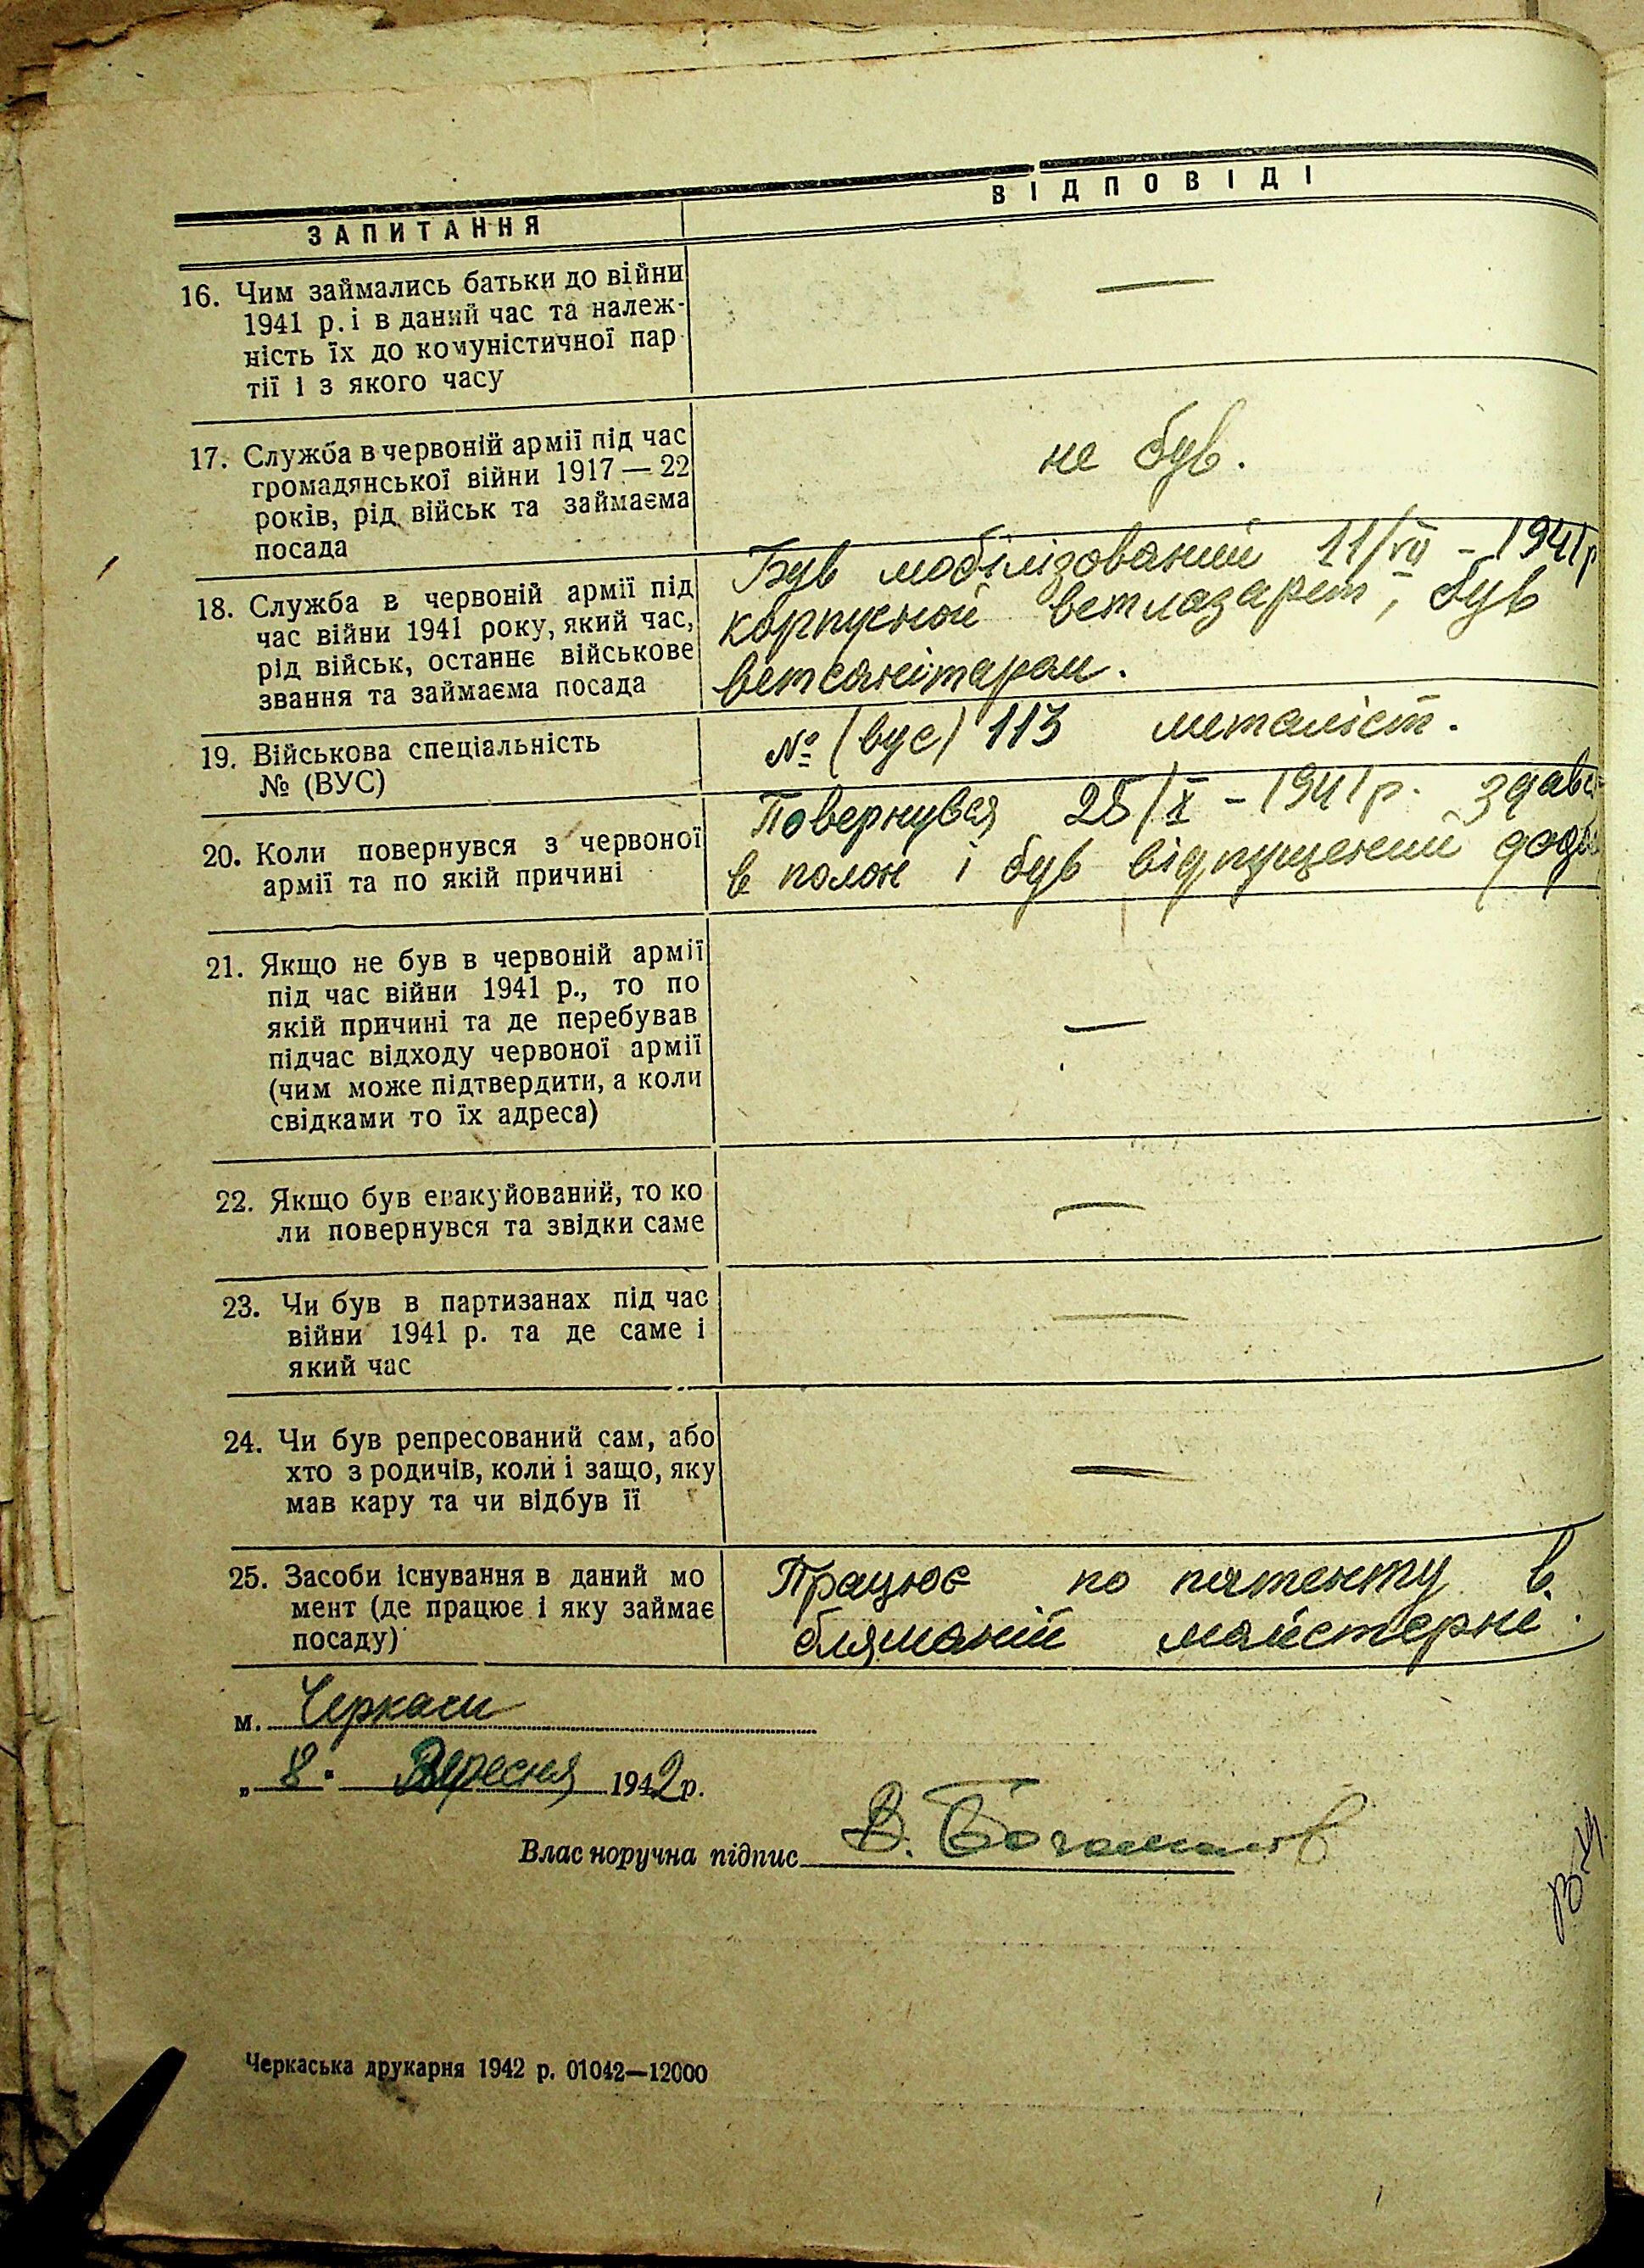 ЗАПИТАННЯ
ВІДПОВІДІ
16. Чим займались батьки до війни
1941 р. і в даний час та належ-
ність їх до комуністичної пар
тії і з якого часу
—
17. Служба в червоній армії під час
громадянської війни 1917 — 22
років, рід військ та займаєма
посада
не був.
18. Служба в червоній армії під
час війни 1941 року, який час,
рід військ, останнє військове
звання та займаєма посада
Був мобілізований 11/VII - 1941р
корпусной ветлазарет, був
ветсанітаром.
19. Військова спеціальність
№ (ВУС)
№ (вус) 113 металіст.
20. Коли повернувся з червоної
армії та по якій причині
Повернувся 25/X - 1941 р. здавс
в полон і був відпущений
21. Якщо не був в червоній армії
під час війни 1941 р., то по
якій причині та де перебував
підчас відходу червоної армії
(чим може підтвердити, а коли
свідками то їх адреса)
—
22. Якщо був евакуйований, то ко
ли повернувся та звідки саме
—
23. Чи був в партизанах під час
війни 1941 р. та де саме і
який час
—
24. Чи був репресований сам, або
хто з родичів, коли і защо, яку
мав кару та чи відбув її
—
25. Засоби існування в даний мо
мент (де працює і яку займає
посаду)
Працює по патенту в
бляшаній майстерні.
м. Черкаси
„ 8 " Вересня 1942 р.
Власноручна підпис В.
Черкаська друкарня 1942 р. 01042—12000